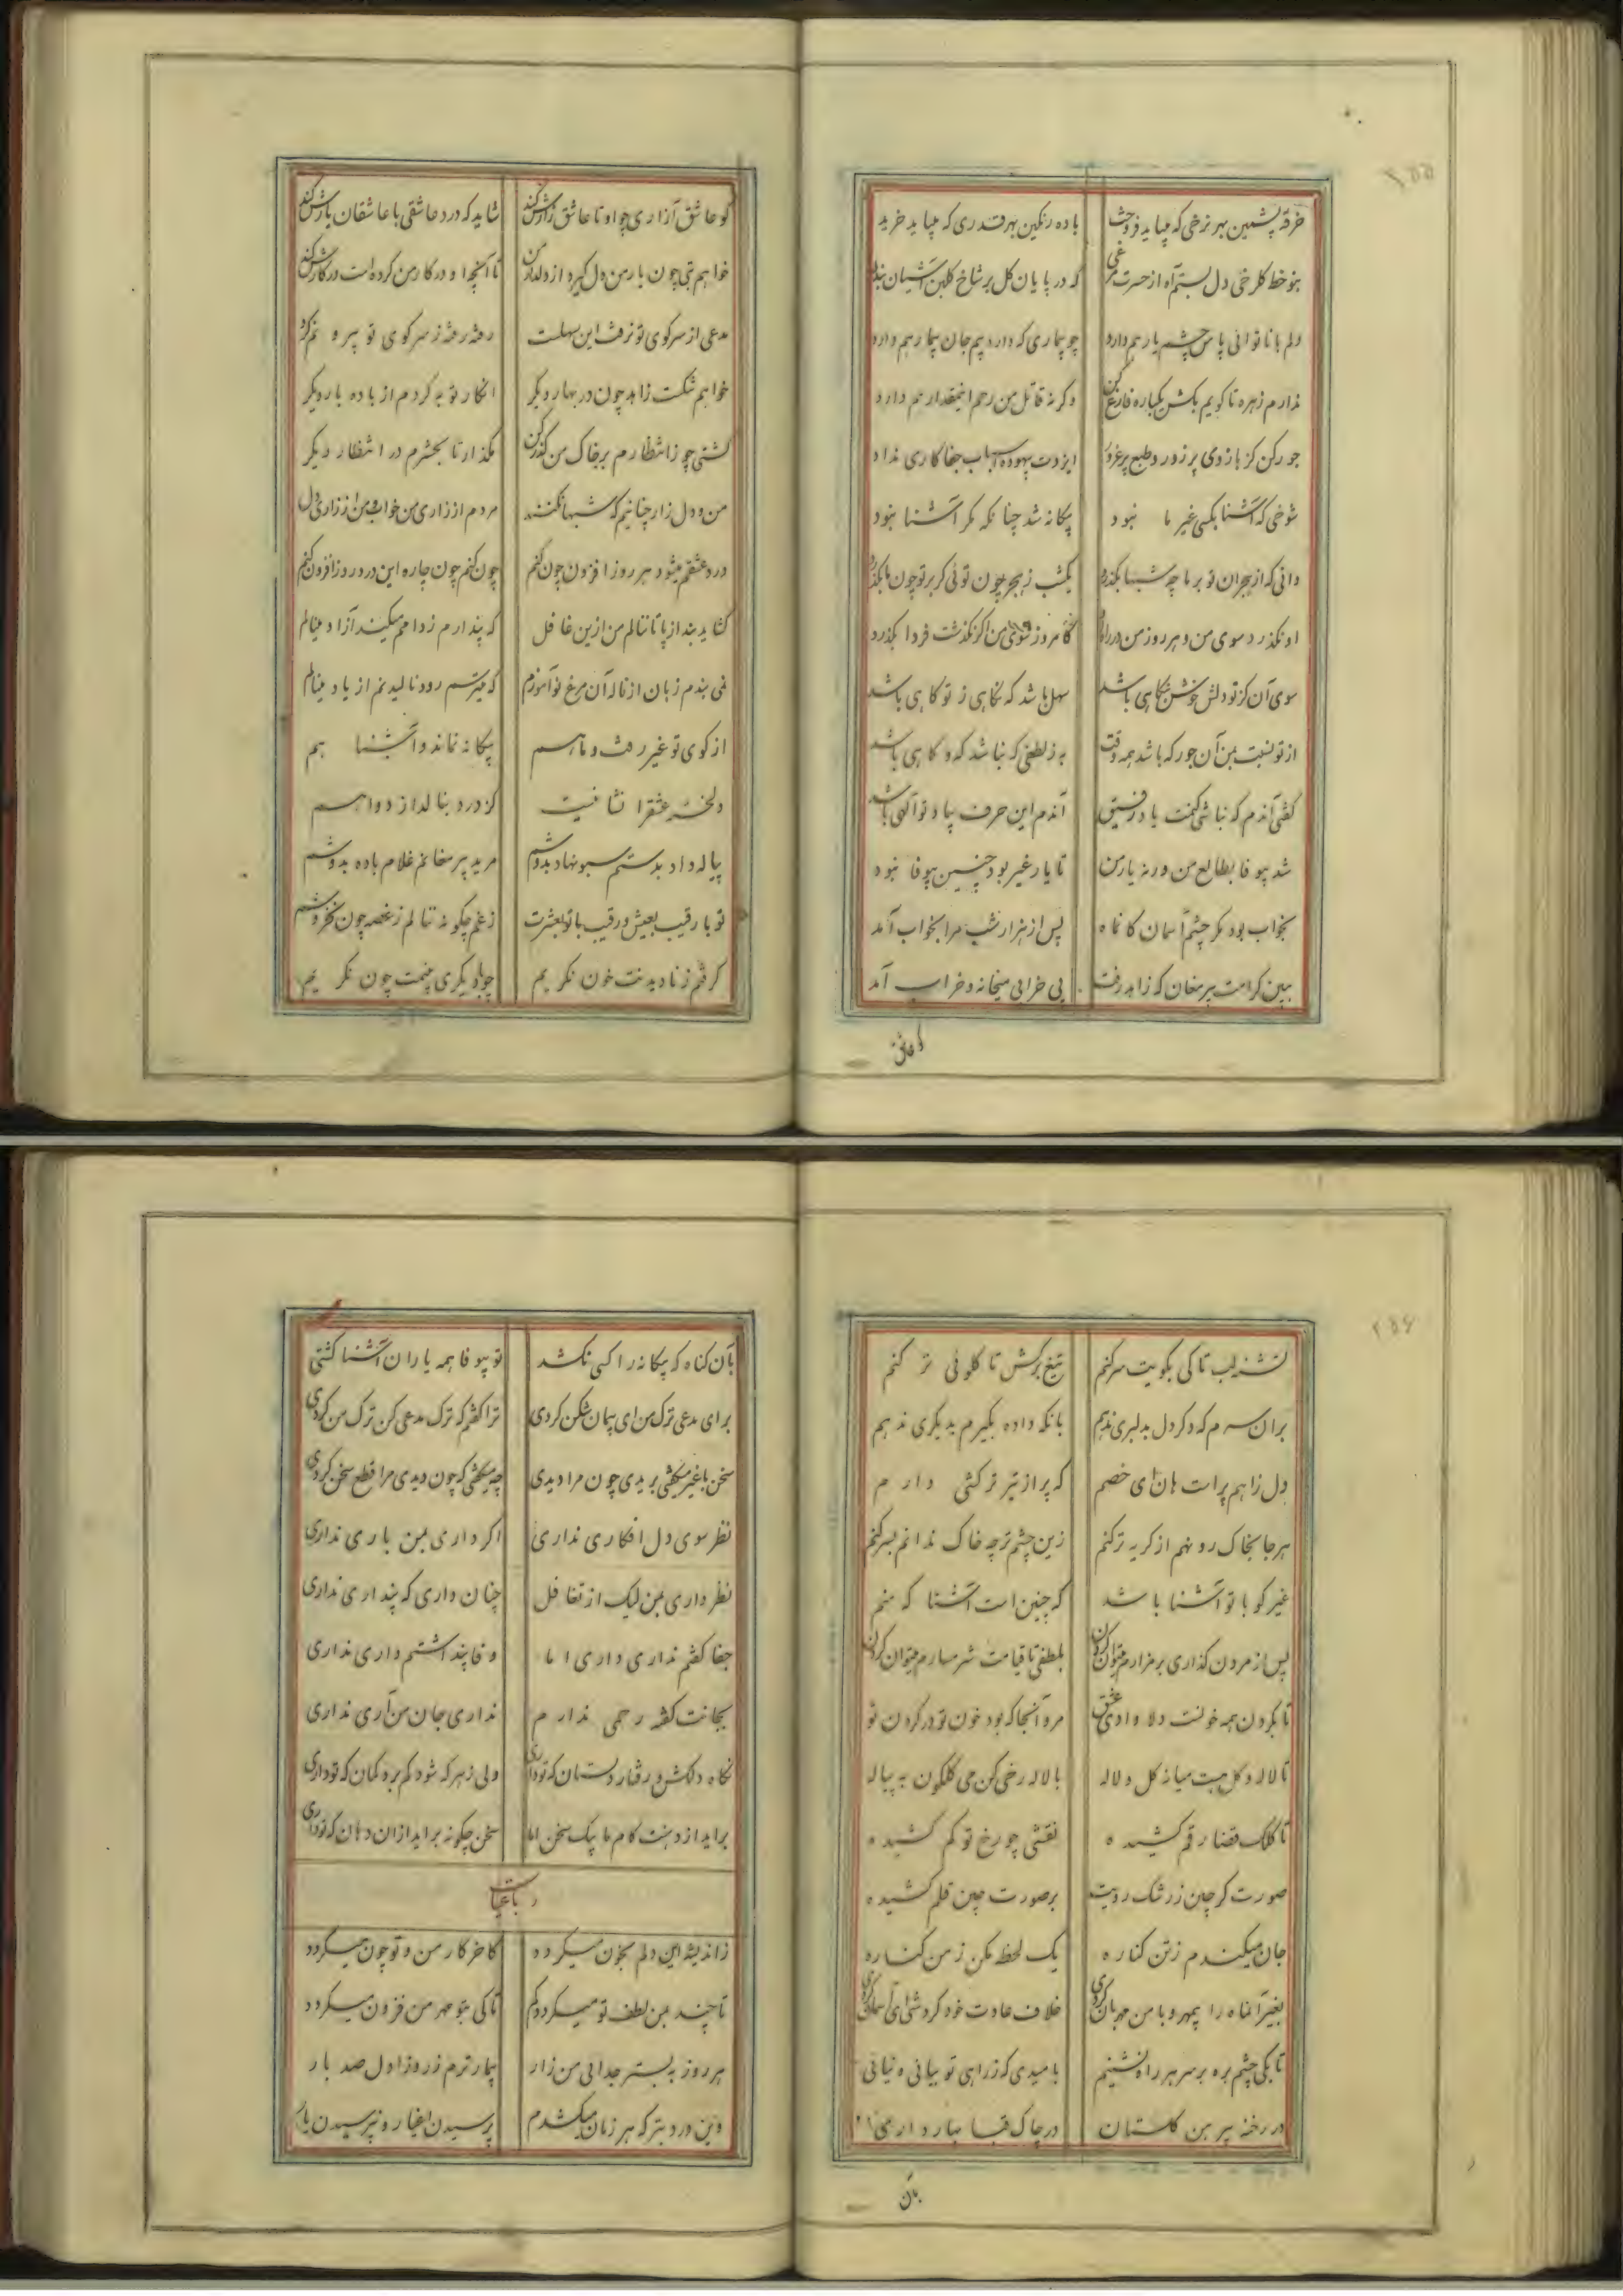 خرقه پشمین بهر نرخی که میباید فروخت باده رنگین بهر قدری که میباید خرید
بنو خط گلرخی دل بستم آه از حسرت مرغی که در پایان گل بر شاخ گلبن آشیان بندد
دلم با ناتوانی پاس چشم یار هم دارد چو بیماری که دارد بیم جان بیمار هم دارد
ندارم زهره تا گویم بکش یکباره فارغ کن وگرنه قاتل من رحم اینمقدار هم دارد
جور کن کز بازوی پر زور و طبع پر غرور ایزدت بیهوده اسباب جفاکاری نداد
شوخی که آشنا بکسی غیر ما نبود بیگانه شد چنانکه مگر آشنا نبود
دانی که از هجران تو بر ما چه شبها بگذرد یکشب ز هجر چون توئی گر بر تو چون ما بگذرد
او نگذرد سوی من و هر روز من در راه او کامروز سوی من اگر نگذشت فردا بگذرد
سوی آن کز تو دلش خوش بنگاهی باشد سهل باشد که نگاهی ز تو گاهی باشد
از تو نسبت بمن آن جور که باشد همه وقت به ز لطفی که نباشد گه و گاهی باشد
گفتی آندم که نباشی کنمت یاد رفیق آندم این حرف بیاد تو الهی باشد
شد بیوفا بطالع من ورنه یار من تا یار غیر بود چنین بیوفا نبود
بخواب بود مگر چشم آسمان کانماه پس از هزار شب مرا بخواب آمد
ببین کرامت پیر مغان که زاهد رفت پی خرابی میخانه و خراب آمد
کو عاشق
کو عاشق آزاری چو او تا عاشق زارش کند شاید که درد عاشقی با عاشقان یارش کند
خواهم بتی چون یار من دل گیرد از دلدار من تا آنچه او در کار من کرده است در کارش کند
مدعی از سر کوی تو نرفت این سهلت رفته رفته ز سر کوی تو بیرونم کرد
خواهم شکست زاهد چون در بهار دیگر انکار توبه کردم از باده بار دیگر
کشتی چو ز انتظارم بر خاک من گذر کن مگذار تا بحشرم در انتظار دیگر
من و دل زار چنانیم که شبها نکنند مردم از زاری من خواب و من از زاری دل
درد عشقم میشود هر روز افزون چون کنم چون کنم چون چاره این درد روز افزون کنم
گشاید بند از پا تا ننالم من ازین غافل که پندارم ز دامم میکند آزاد مینالم
نمی بندم زبان از ناله آن مرغ نوآموزم که میترسم رود نالیدنم از یاد مینالم
از کوی تو غیر رفت و ما هم بیگانه نماند و آشنا هم
دلخسته عشقرا شفا نیست کز درد بنالد از دوا هم
پیاله داد بدستم سبو نهاد بدوشم مرید پیر مغانم غلام باده بدوشم
تو با رقیب بعیش و رقیب با تو بعشرت ز غم چگونه ننالم ز غصه چون نخروشم
گرفتم ز نادیدنت خون نگریم چو با دیگری بینمت چون نگریم
تشنه لب تا کی بکویت سر کنم تیغ برکش تا گلوئی تر کنم
بر آن سرم که دگر دل بدلبری ندهم بانکه داده بگیرم بدیگری ندهم
دل ز آهم پر است هان ای خصم که پر از تیر ترکشی دارم
هر جا بخاک رو نهم از گریه تر کنم زین چشم تر چه خاک ندانم بسر کنم
غیر کو با تو آشنا باشد که چنین است آشنا که منم
پس از مردن گذاری بر مزارم میتوان کردن بلطفی تا قیامت شرمسارم میتوان کردن
تا بگردن همه خونست دلا وادی عشق مرو آنجا که بود خون تو در گردن تو
تا لاله و گل هست میانه گل و لاله با لاله رخی کن می گلگون به پیاله
تا کلک قضا رقم کشیده نقشی چو رخ تو کم کشیده
صورتگر چین ز رشک رویت بر صورت چین قلم کشیده
جان میکندم ز تن کناره یک لحظه مکن ز من کناره
بغیر آنماه را بیمهر و با من مهربان کردی خلاف عادت خود کردش ای آسمان کردی
تا بکی چشم بره بر سر هر راه نشینم بامیدی که ز راهی تو بیائی و نیائی
در رخنه پیرهن گلستان در چاک قبا بهار داری
بان
بآن گناه که بیگانه را کسی نکشد تو بیوفا همه یاران آشنا کشتی
برای مدعی ترک من ای پیمان شکن کردی ترا گفتم که ترک مدعی کن ترک من کردی
سخن با غیر میگفتی بریدی چون مرا دیدی چه میگفتی که چون دیدی مرا قطع سخن کردی
نظر سوی دل افکاری نداری اگر داری بمن باری نداری
نظر داری بمن لیک از تغافل چنان داری که پنداری نداری
جفا گفتم نداری داری اما وفا پنداشتم داری نداری
بجانت گفته رحمی ندارم نداری جان من آری نداری
نگاه دلکش و رفتار دلستان که تو داری ولی ز هر که شود گم بره گمان که تو داری
برآید از دهنت کام ما بیک سخن اما سخن چگونه برآید از آن دهان که تو داری
رباعیات
ز اندیشه این دلم بخون میگردد کاخر کار من و تو چون میگردد
تا چند بمن لطف تو میگردد کم تا کی بتو مهر من فزون میگردد
هر روز به بستر جدائی من زار بیمارترم ز روز اول صد بار
وین درد بتر که هر زمان میکشدم پرسیدن اغیار و نپرسیدن یار